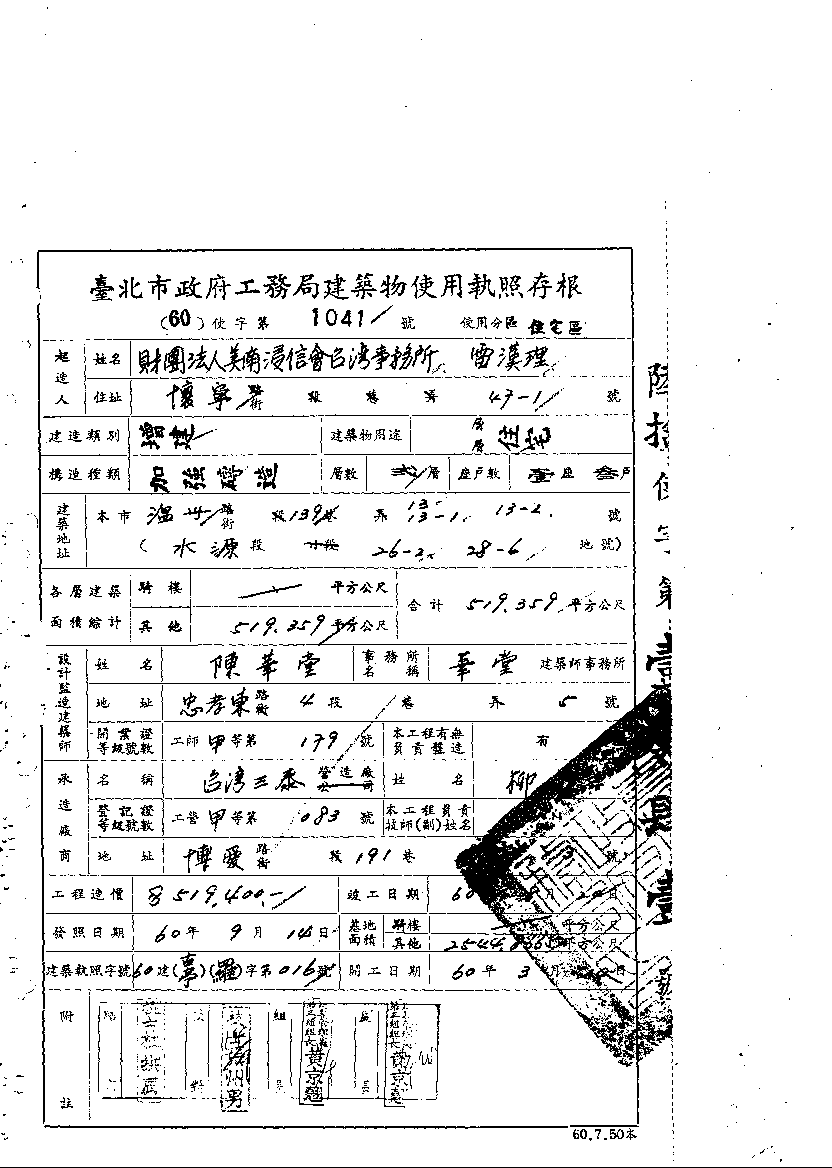 臺北市政府工務局建築物使用執照存根
(60)使字第 1041 號 使用分區 住宅區
起造人 姓名 財團法人美南浸信會台湾事務所 雷漢理
住址 懷寧 路街 段 巷 弄 47-1 號
建造類別 增建 建築物用途 層層 住宅
構造種類 加強磚造 層數 弍層 座戶數 壹座 叁戶
建築地址 本市 温州 路街 段 139巷 弄 13- 13-1 13-2 號
(水源段 小段 26-2 28-6 地號)
各層建築面積綜計 騎樓 平方公尺 合計 519.359 平方公尺
其他 519.359 平方公尺
設計監造建築師 姓名 陳華堂 事務所名稱 華堂 建築師事務所
地址 忠孝東 路街 4段 巷 弄 5號
開業證等級號數 工師甲等第 179 號 本工程有無負責監造 有
承造廠商 名稱 台湾三泰 營造廠公司 姓名 柳
登記證等級號數 工營甲等第 083 號 本工程負責技師(副)姓名
地址 博愛 路街 段 191巷 號
工程造價 519,400.- 竣工日期 60 月 日
發照日期 60年 9月 14日 基地面積 騎樓 平方公尺
其他 平方公尺
建築執照字號 60建( )(羅)字第016號 開工日期 60年 3月 日
附註
黃京
60.7.50本
陸拾使字第壹 號